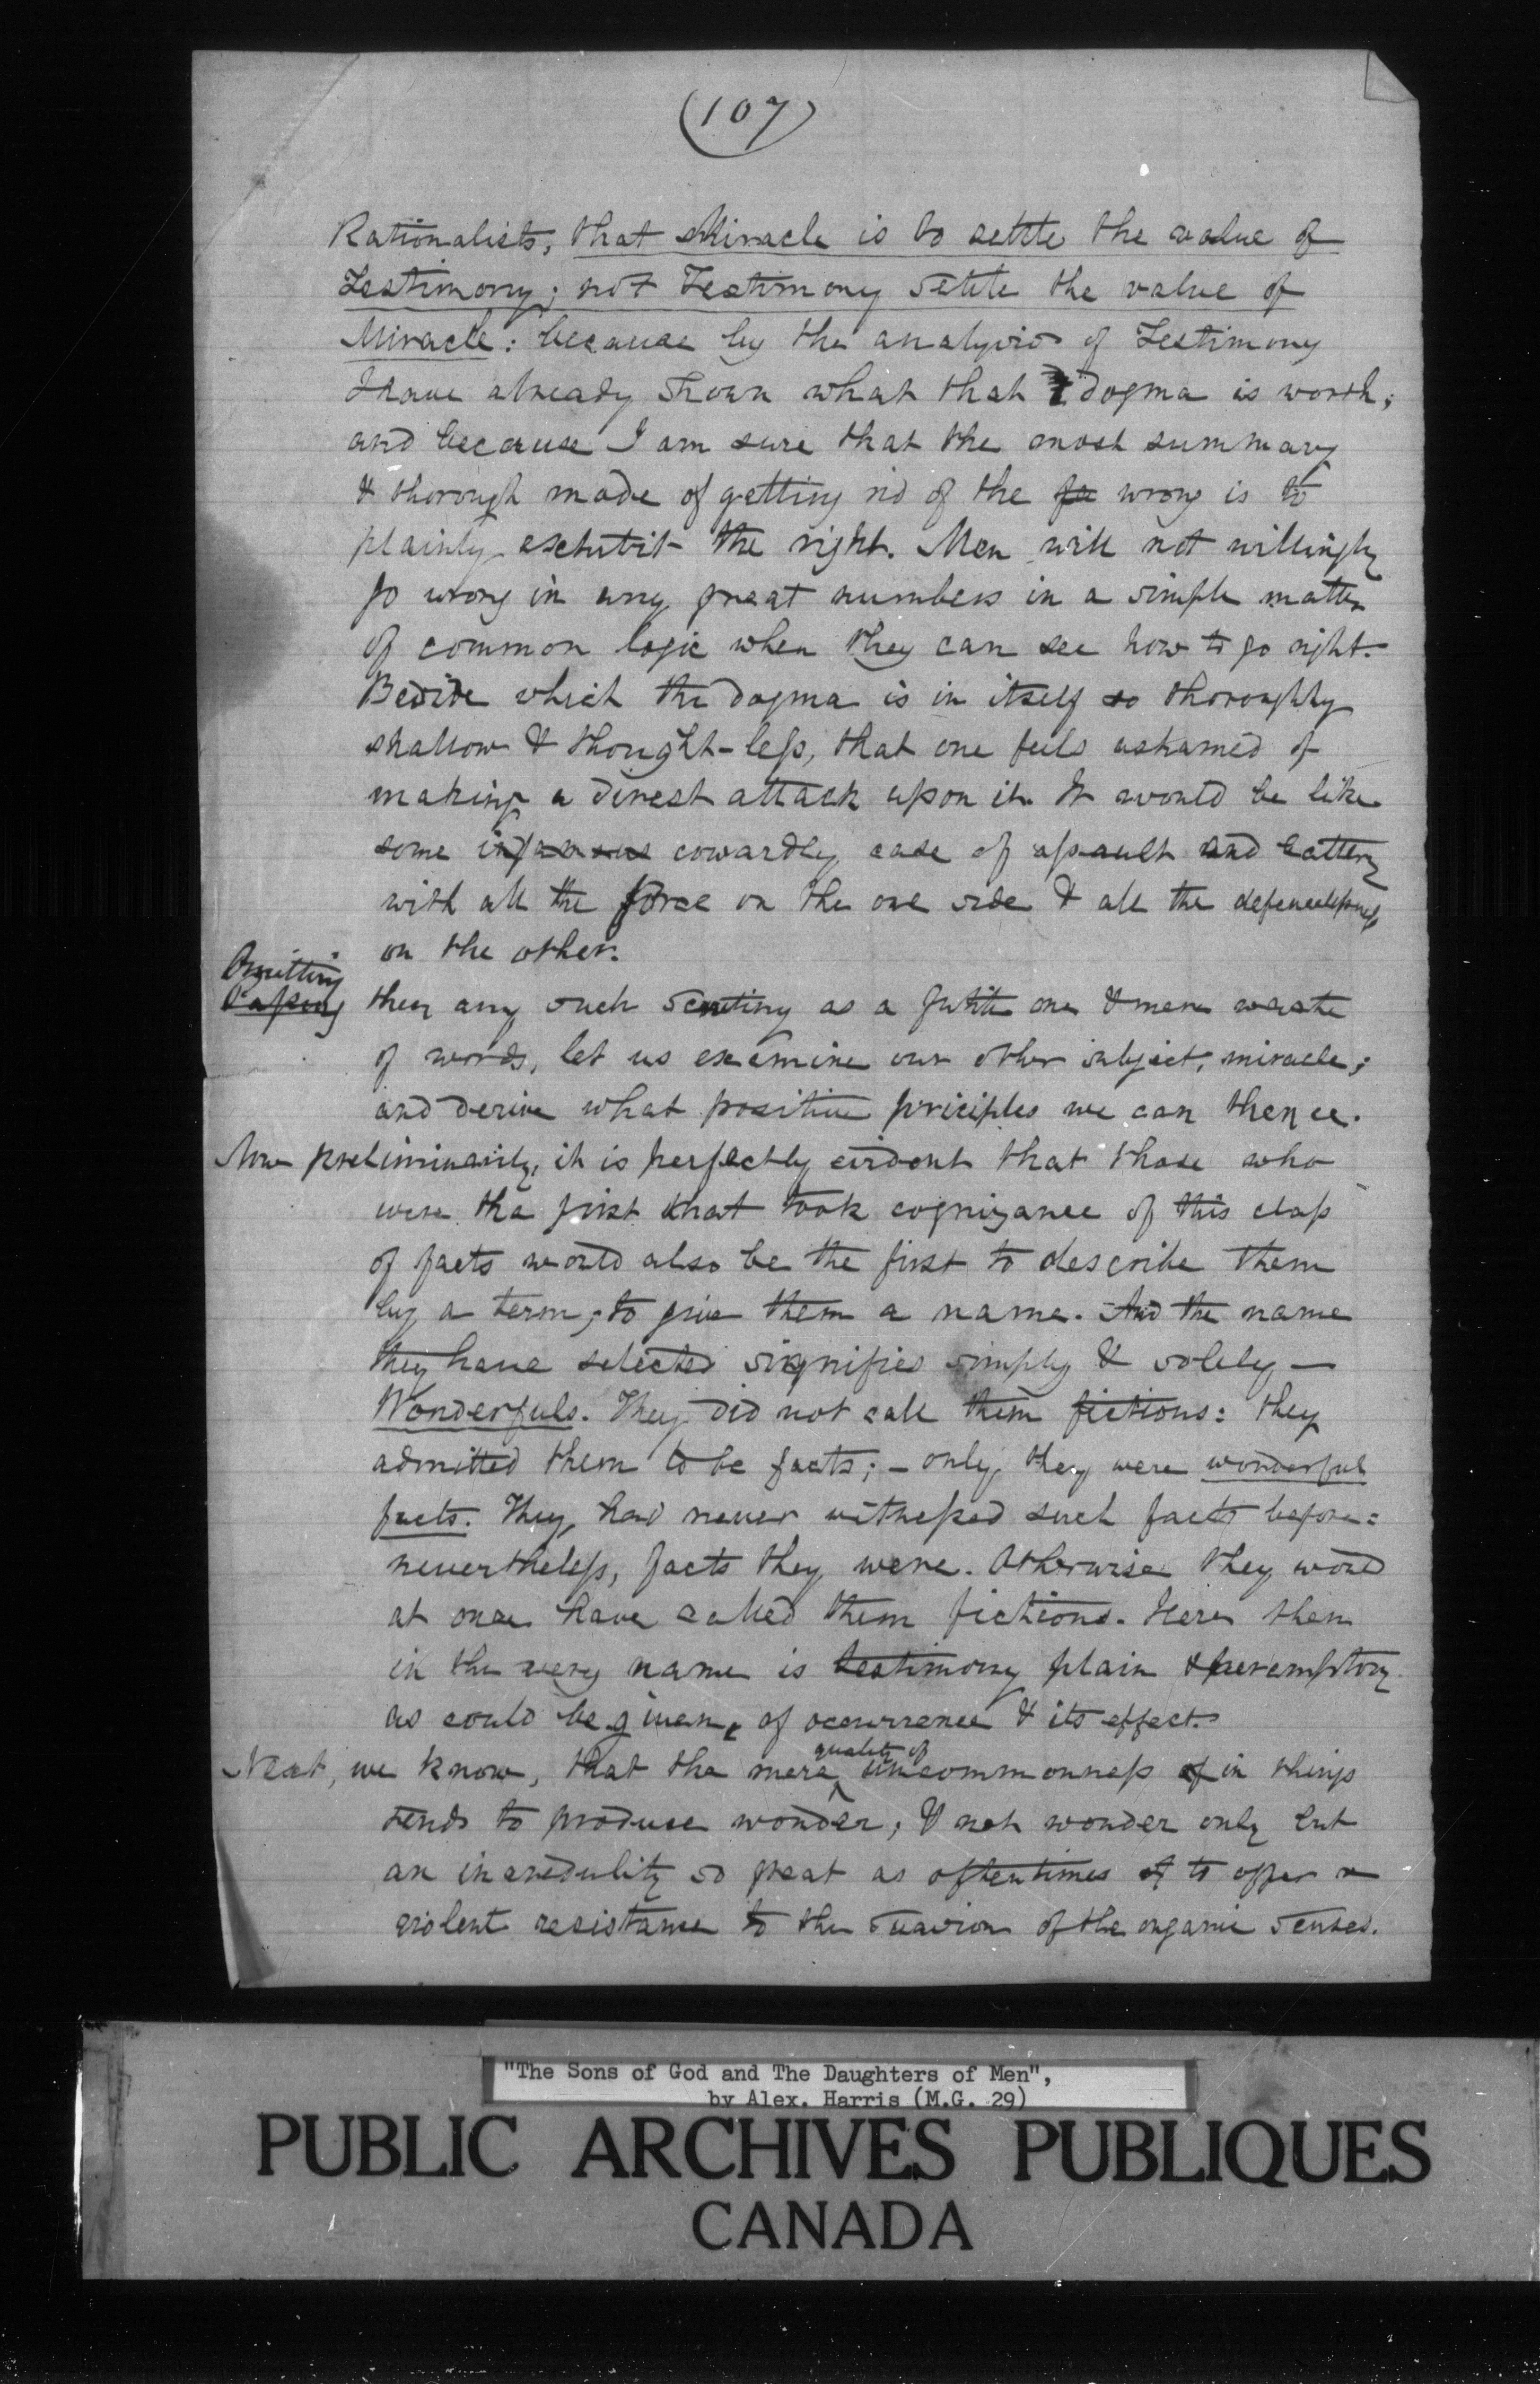 (107)
Rationalists, that Miracle is to settle the value of
Testimony; not Testimony settle the value of
Miracle: because by the analysis of Testimony
I have already shown what that dogma is worth;
and because I am sure that the most summary
& thorough mode of getting rid of the fa wrong is to
plainly exhibit the right. Men will not willingly
go wrong in any great numbers in a simple matter
of common logic when they can see how to go right.
Beside which the dogma is in itself so thoroughly
shallow & thought-less, that one feels ashamed of
making a direct attack upon it. It would be like
some infamous cowardly case of assault and battery
with all the force on the one side & all the defencelessness
on the other.
Omitting
Passing then any such scrutiny as a futile one & mere waste
of words, let us examine our other subject, miracle;
and derive what positive priciples we can thence.
Now preliminarily, it is perfectly evident that those who
were the first that took cognizance of this class
of facts would also be the first to describe them
by a term; to give them a name. And the name
they have selected signifies simply & solely —
Wonderfuls. They did not call them fictions: they
admitted them to be facts; – only, they were wonderful
facts. They had never witnessed such facts before:
nevertheless, facts they were. Otherwise they would
at once have called them fictions. Here then
in the very name is testimony plain & peremptory
as could be given, of occurrence & its effect.
Next, we know, that the mere quality of uncommonness of in things
tends to produce wonder; & not wonder only but
an incredulity so great as oftentimes to offer a
violent resistance to the of the organic senses.
"The Sons of God and The Daughters of Men",
by Alex. Harris (M.G. 29)
PUBLIC ARCHIVES PUBLIQUES
CANADA